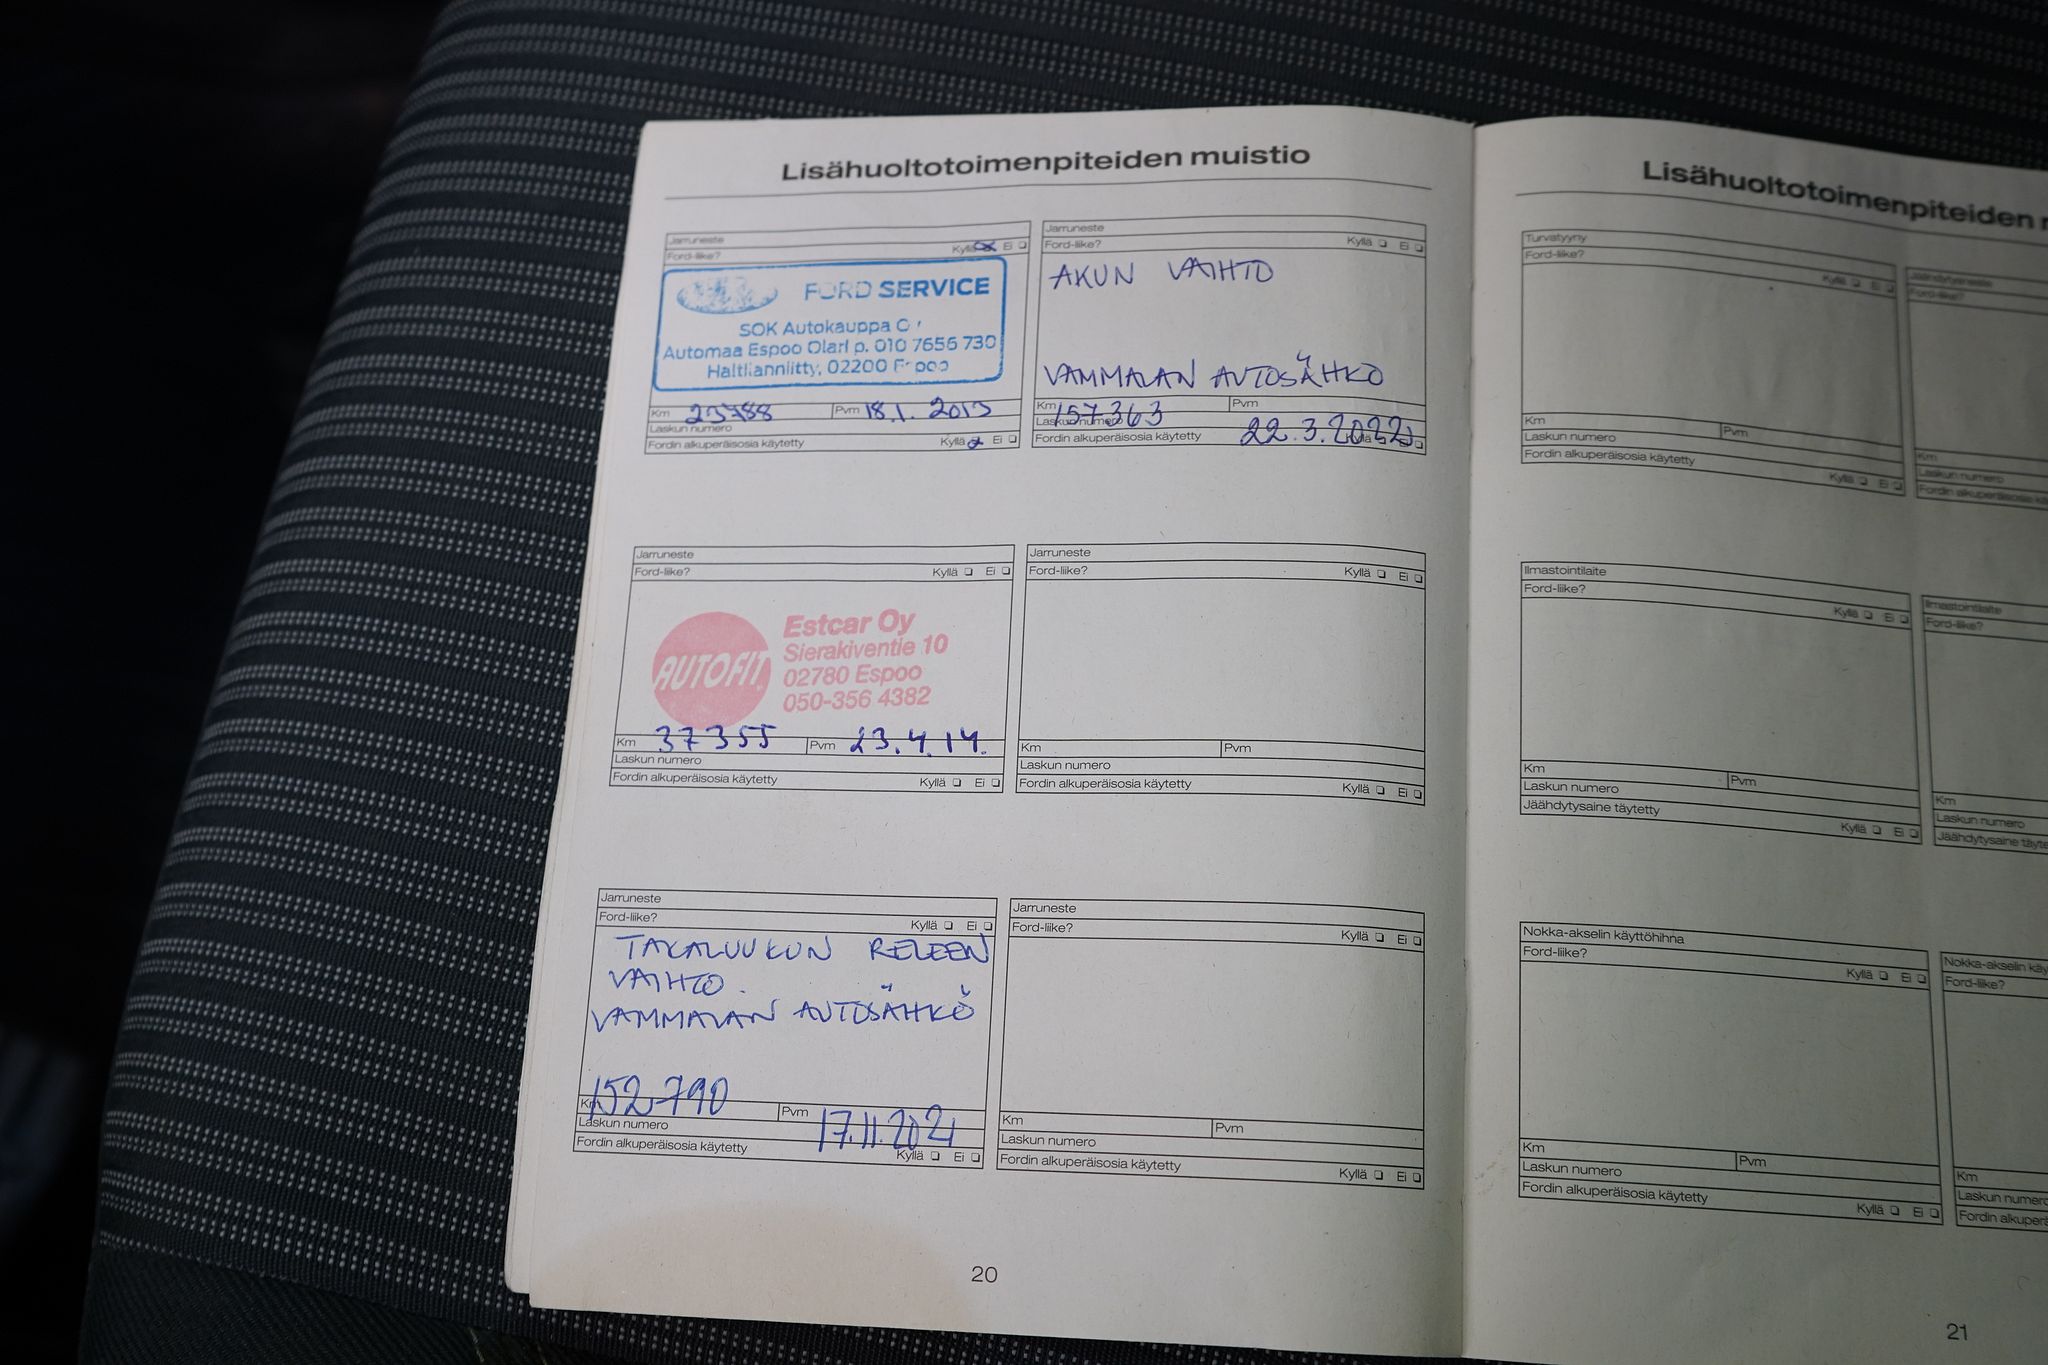 Lisähuoltotoimenpiteiden muistio
Jarruneste
Ford-liike? Kyllä Ei
FORD SERVICE
SOK Autokauppa
Automaa Espoo Olari p. 010 7656 730
Haltlianniitty, 02200 Espoo
Km 23788 Pvm 18.1. 2013
Laskun numero
Fordin alkuperäisosia käytetty Kyllä Ei
Jarruneste
Ford-liike? Kyllä Ei
AKUN VAIHTO
VAMMALAN AUTOSÄHKÖ
Km 157363 Pvm
Laskun numero
Fordin alkuperäisosia käytetty 22.3.2022 Kyllä
Jarruneste
Ford-liike? Kyllä Ei
AUTOFIT
Estcar Oy
Sierakiventie 10
02780 Espoo
050-356 4382
Km 37355 Pvm 23.4.14.
Laskun numero
Fordin alkuperäisosia käytetty Kyllä Ei
Jarruneste
Ford-liike? Kyllä Ei
Km Pvm
Laskun numero
Fordin alkuperäisosia käytetty Kyllä Ei
Jarruneste
Ford-liike? Kyllä Ei
TAKALUUKUN RELEEN
VAIHTO.
VAMMALAN AUTOSÄHKÖ
Km 152790 Pvm 17.11.2021
Laskun numero
Fordin alkuperäisosia käytetty Kyllä Ei
Jarruneste
Ford-liike? Kyllä Ei
Km Pvm
Laskun numero
Fordin alkuperäisosia käytetty Kyllä Ei
20
Lisähuoltotoimenpiteiden
Turvatyyny
Ford-liike? Kyllä Ei
Km Pvm
Laskun numero
Fordin alkuperäisosia käytetty Kyllä Ei
Jäähdytysneste
Ford-liike?
Km
Laskun numero
Fordin alkuperäisosia
Ilmastointilaite
Ford-liike? Kyllä Ei
Km Pvm
Laskun numero
Jäähdytysaine täytetty Kyllä Ei
Ilmastointilaite
Ford-liike?
Km
Laskun numero
Jäähdytysaine täyte
Nokka-akselin käyttöhihna
Ford-liike? Kyllä Ei
Km Pvm
Laskun numero
Fordin alkuperäisosia käytetty Kyllä Ei
Nokka-akselin käy
Ford-liike?
Km
Laskun numero
Fordin alkuper
21